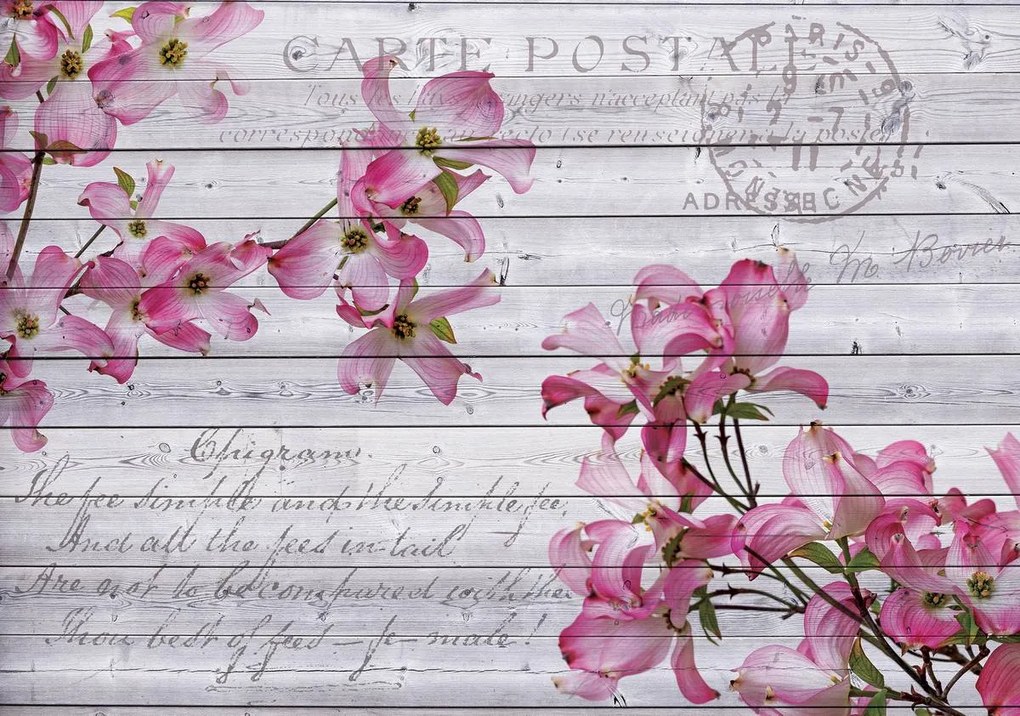 CARTE POSTALE
Tous les Pays étrangers n'acceptant pas la
correspondance au recto (se renseigner à la poste)
PARIS
ADRESSE
M. Bovier
Epigram.
The fee simple and the simple fee,
And all the fees in tail
Are not to be compared with thee
Thou best of fees – fe-male!